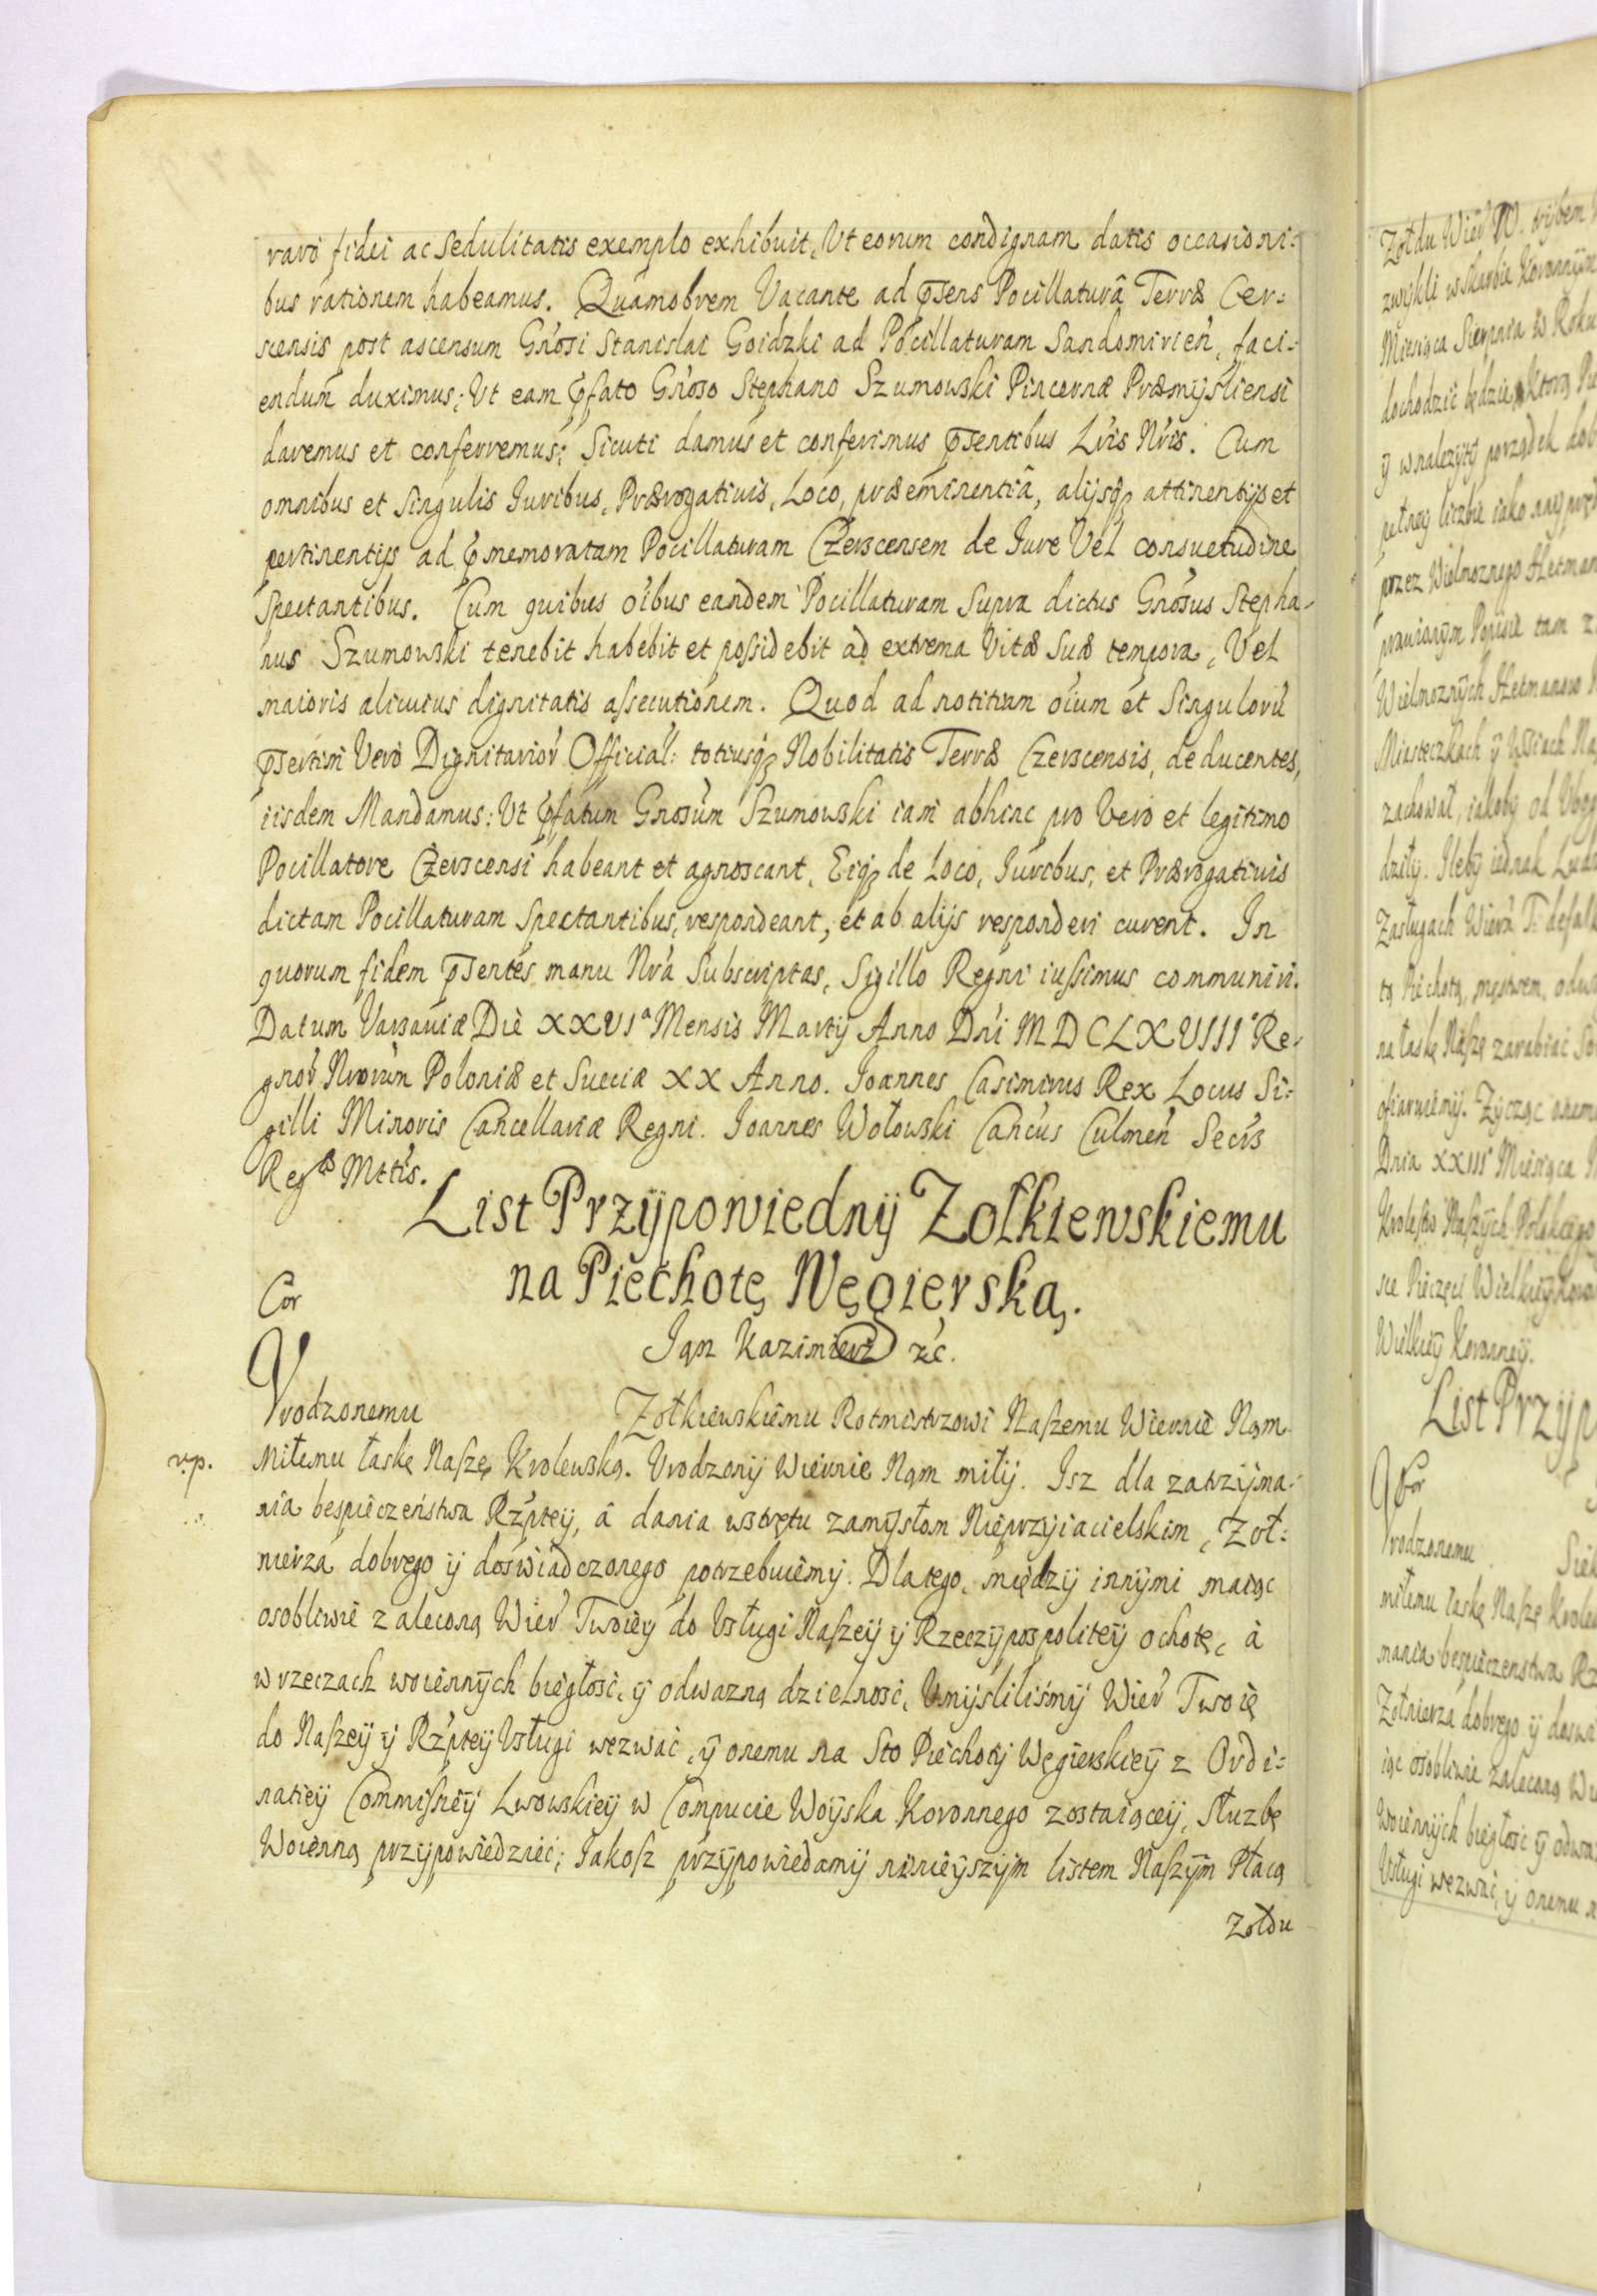 raro fidei ac Sedulitatis exemplo exhibuit, Ut eorum condignam datis occasioni:
bus rationem habeamus. Quamobrem Vacante ad p̃sens Pocillaturâ Terræ Cer:
scensis post ascensum Gńosi Stanislai Goidzki ad Pocillaturam Sandomirień, faci:
endum duximus; Ut eam p̃fato Gńoso Stephano Szumowski Pincernæ Præmysliensi
daremus et conferremus; Sicuti damus et conferimus p̃sentibus Lŕis Nŕis. Cum
omnibus et Singulis Iuribus, Prærogatiuis, Loco, præeminentiâ, alijsq3 attinentijs et
pertinentijs ad p̃memoratam Pocillaturam Czerscensem de Iure Vel consuetudine
Spectantibus. Cum quibus oíbus eandem Pocillaturam Supra dictus Gnósus Stepha-
nus Szumowski tenebit habebit et possidebit ad extrema Vitæ Suæ tempora, Vel
maioris alicuius dignitatis assecutionem. Quod ad notitiam oíum et Singulorú
p̃sertim Verò Dignitarioŕ Officiał: totiusq3 Nobilitatis Terræ Czerscensis, deducentes,
iisdem Mandamus: Ut p̃fatum Gnosum Szumowski iam abhinc pro Vero et legitimo
Pocillatore Czerscensi habeant et agnoscant, Eiq3 de Loco, Iuribus, et Prærogatiuis
dictam Pocillaturam Spectantibus, respondeant, et ab alijs responderi curent. In
quorum fidem p̃sentes manu Nŕa Subscriptas, Sigillo Regni iussimus communiri.
Datum Varsauiæ Die XXVIª Mensis Martij Anno Dńi MDCLXVIII° Re-
gnoŕ Nrorum Poloniæ et Sueciæ XX Anno. Joannes Casimirus Rex Locus Si:
gilli Minoris Cancellariæ Regni. Joannes Wołowski Cańcus Culmeń Secŕs
Regæ Mttis.
List Przypowiedny Zołkiewskiemu
na Piechotę Węgierską.
Cor
Jan Kazimierz etc.
Vrodzonemu Zołkiewskiemu Rotmistrzowi Naszemu Wiernie Nąm
v.p.
Miłemu łaskę Naszę Krolewską. Vrodzony Wiernie Nąm miły. Isz dla zatrzyma:
nia bespieczeństwa Rzptey, â dania wstrętu zamysłom Nieprzyiacielskim, Zoł:
nierza dobrego y doświadczonego potrzebuiemy. Dlatego, między innymi maiąc
osobliwie zaleconą Wieŕ Twoiey do Vsługi Naszey y Rzeczypospolitey ochotę, â
w rzeczach woiennych biegłość, y odwazną dzielność, Vmyśliliśmy Wieŕ Twoię
do Naszey y Rzptey Vsługi wezwać, y onemu na Sto Piechoty Węgierskiey z Ordi:
natiey Commissiey Lwowskiey w Compucie Woyska Koronnego zostaiącey, Służbę
Woienną przypowiedzieć; Jakosz przypowiedamy ninieyszym listem Naszym Płacą
Zołdu
Zołdu Wieŕ W. trybem
zwykli w skarbie Koronnym
Miesiąca Sierpnia w Roku
dochodzić będzie, Ktorą Pie
y w nalezyty porządek dob
pełney liczbie iako nayprę
przez Wielmoznego Hetman
prawionym Popisie tam z
Wielmoznych Hetmanow
Miasteczkach y Wsiach Na
zachował, iakoby od Vbog
dziły. Ileby iednak Ludz
Zasługach Wieŕ T. defalk
tą Piechotą, męstwem, odwa
na łaskę Naszę zarabiać
ofiaruiemy. Zycząc onemu
Dnia XXIII Miesiąca
Krolestw Naszych Polskiego
sce Pieczęci Wielkiey Koro
Wielkiey Koronney.
List Przyp
Cor
Vrodzonemu Siek
miłemu łaskę Naszę Krolew
mania bespieczenstwa Rz
Zołnierza dobrego y doswia
iąc osobliwie zaleconą Wi
Woiennych biegłość y odwa
Vsługi wezwać, y onemu n